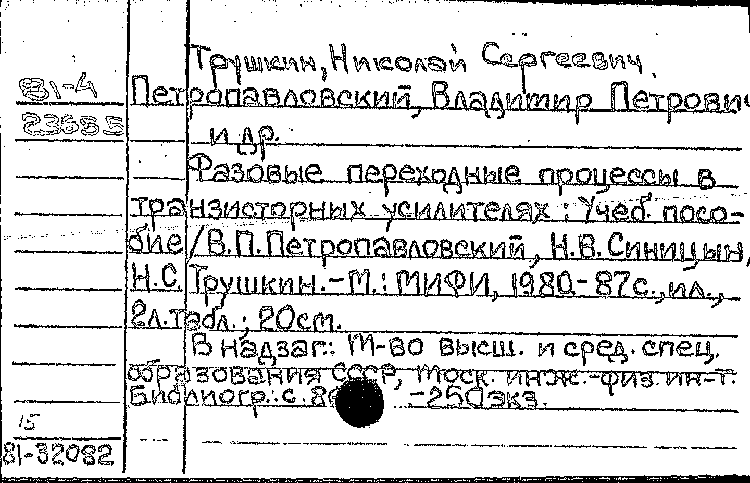 Трушкин, Николай Сергеевич.
81-4
Петропавловский, Владимир Петрович
23685
и др.
Фазовые переходные процессы в
транзисторных усилителях : Учеб. посо-
бие / В.П. Петропавловский, Н.В. Синицын,
Н.С. Трушкин. - М. : МИФИ, 1980. - 87с., ил.,
2л. табл. ; 20см.
В надзаг.: М-во высш. и сред. спец.
образования СССР, Моск. инж.-физ. ин-т.
Библиогр.: с. - 250экз.
15
81-32082